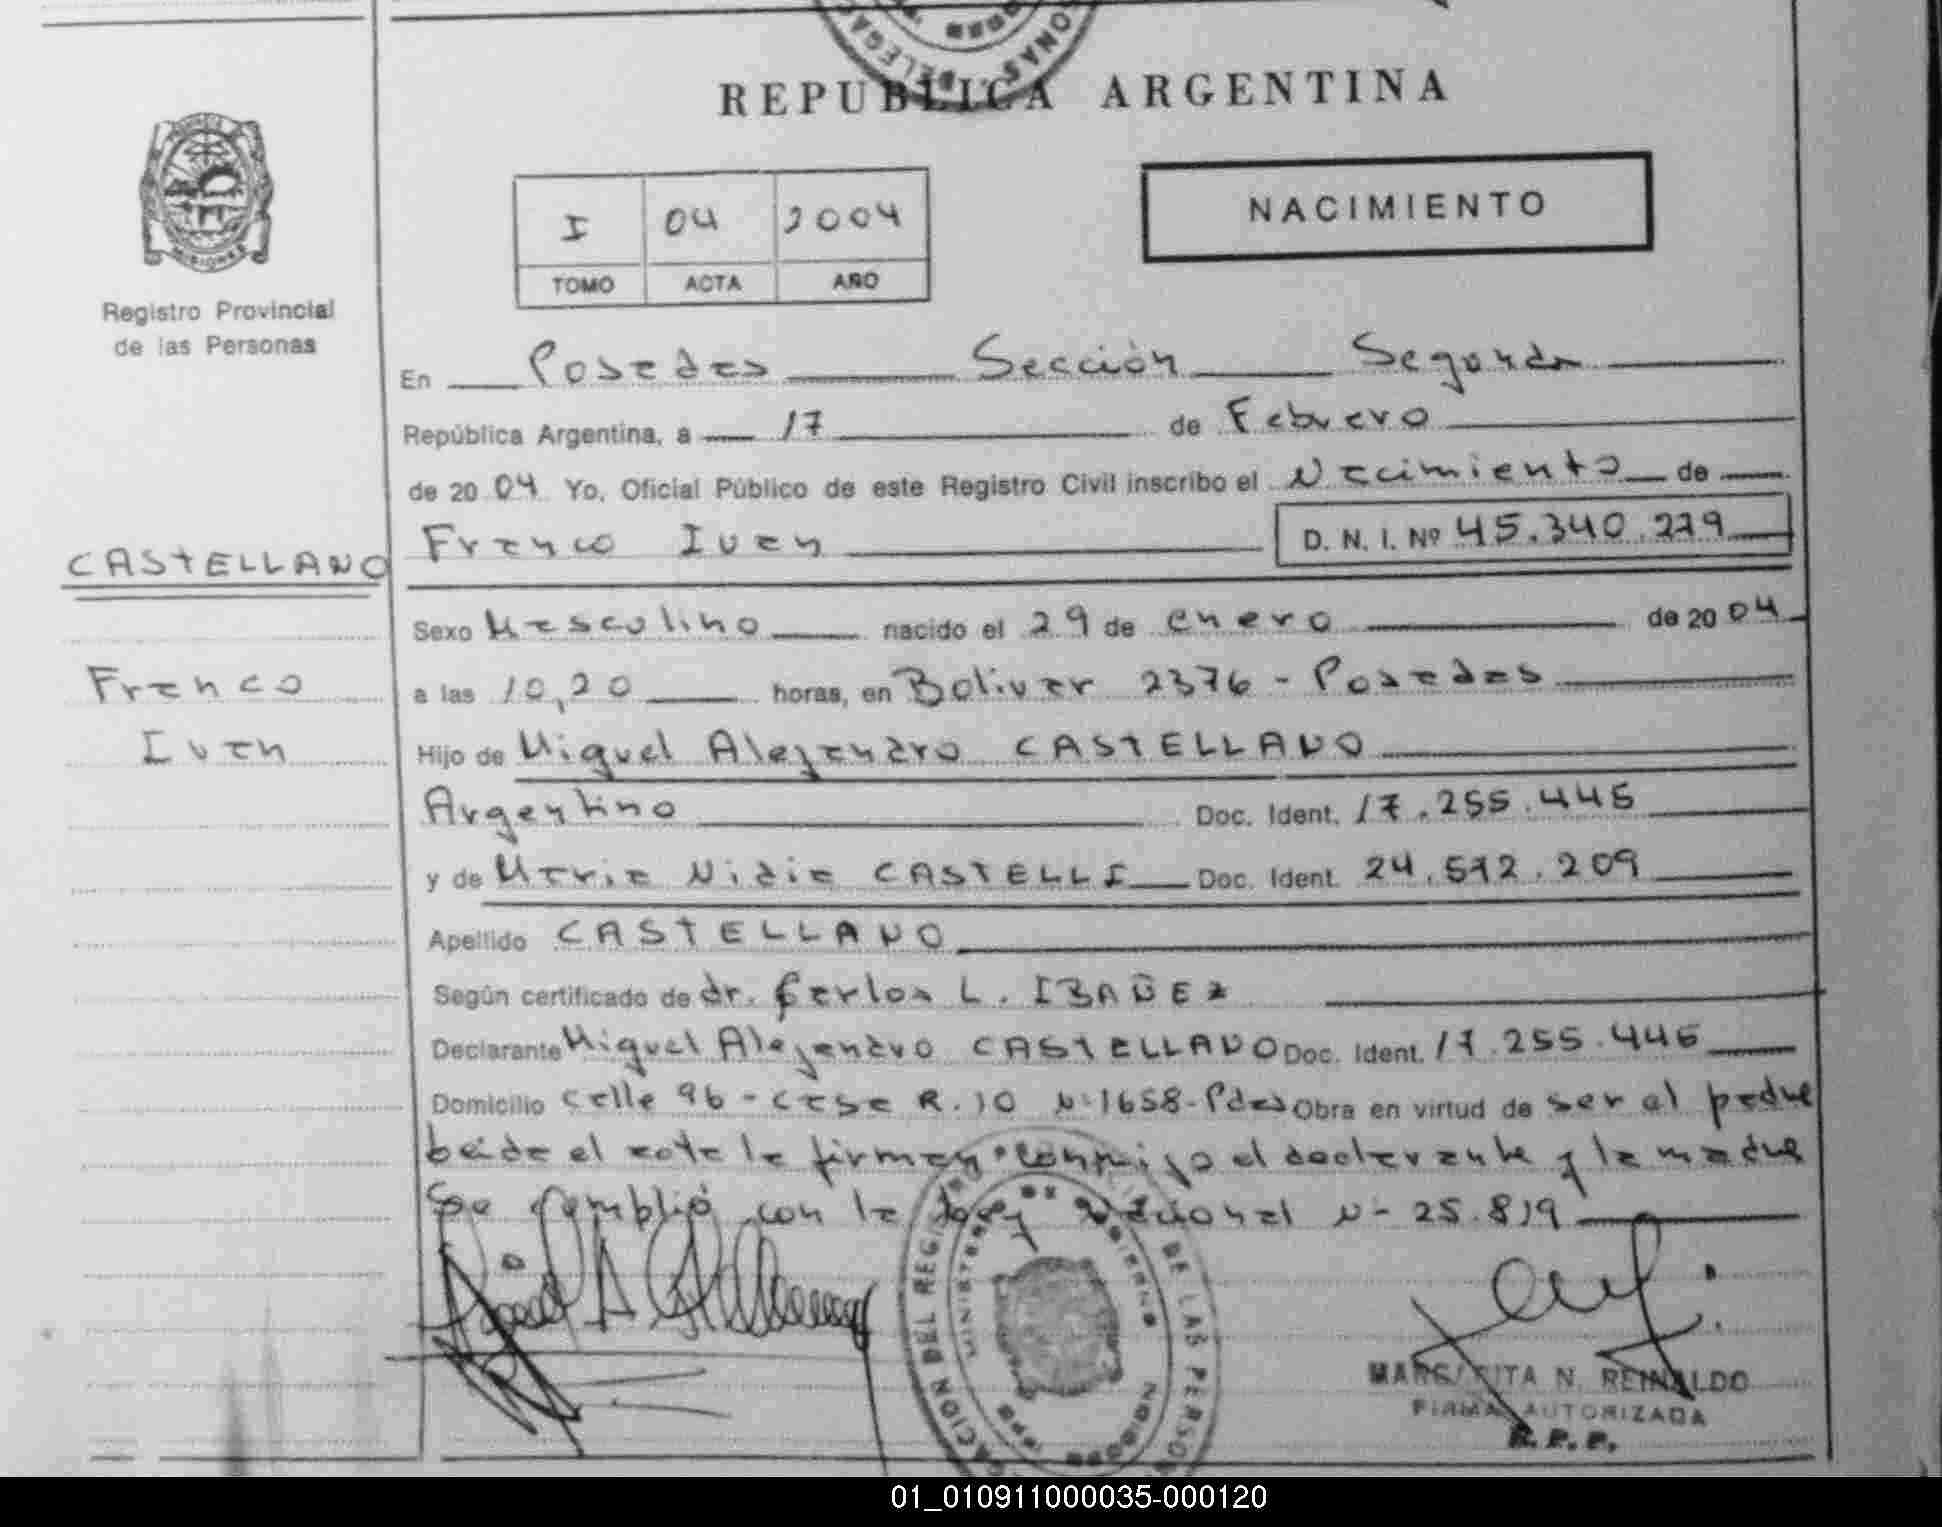 REPUBLICA ARGENTINA
Registro Provincial
de las Personas
I 04 2004
TOMO ACTA AÑO
NACIMIENTO
En Posadas Sección Segunda
República Argentina, a 17 de Febrero
de 2004 Yo, Oficial Público de este Registro Civil inscribo el Nacimiento de
Franco Ivan D. N. I. Nº 45.340.279
CASTELLANO
Franco
Ivan
Sexo Masculino nacido el 29 de enero de 2004
a las 10,20 horas, en Bolivar 2376 - Posadas
Hijo de Miguel Alejandro CASTELLANO
Argentino Doc. Ident. 17.255.445
y de Maria Nidia CASTELLI Doc. Ident. 24.572.209
Apellido CASTELLANO
Según certificado de dr. Carlos L. IBAÑEZ
Declarante Miguel Alejandro CASTELLANO Doc. Ident. 17.255.445
Domicilio calle 96 - casa R. 10 Nº 1658 - Pdas Obra en virtud de ser el padre
leida el acta la firman conmigo el declarante y la madre
Se cumplió con la Ley Nacional Nº 25.819
MARGARITA N. REINALDO
FIRMA AUTORIZADA
R. P. P.
01_010911000035-000120